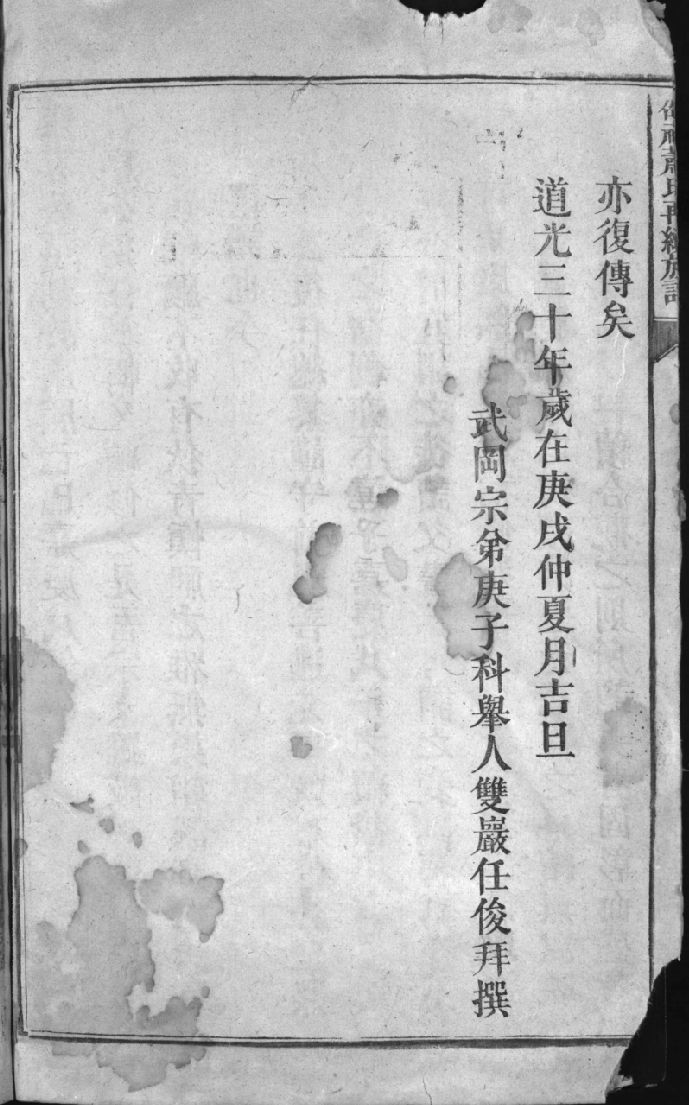 亦復傳矣
道光三十年歲在庚戌仲夏月吉旦
武岡宗弟庚子科舉人雙巖任俊拜撰
氏再續族譜